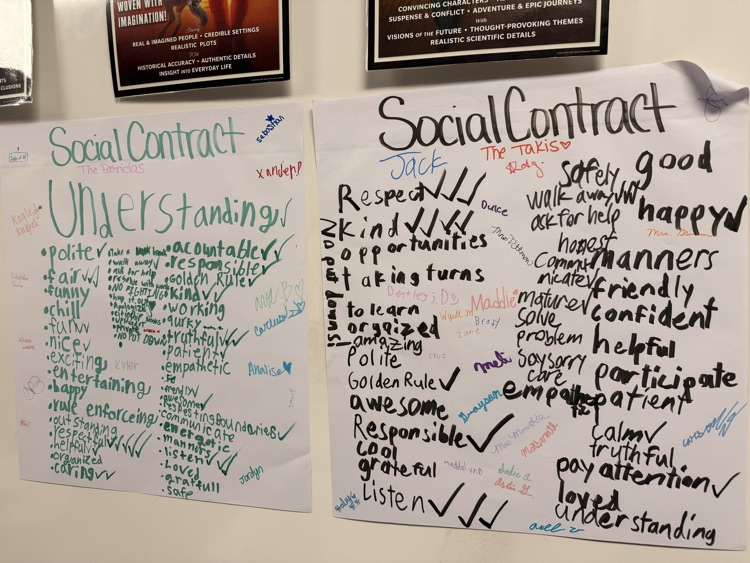 WOVEN WITH
IMAGINATION!
REAL & IMAGINED PEOPLE • CREDIBLE SETTINGS
REALISTIC PLOTS
With
HISTORICAL ACCURACY • AUTHENTIC DETAILS
INSIGHT INTO EVERYDAY LIFE
SUSPENSE & CONFLICT • ADVENTURE & EPIC JOURNEYS
With
VISIONS OF THE FUTURE • THOUGHT-PROVOKING THEMES
REALISTIC SCIENTIFIC DETAILS
Social Contract
sebastian
The Patricias
xander
Understanding ✓
• polite ✓
• fair ✓✓
• funny
• chill
• nice ✓
• exciting
• entertaining
• happy
• rule enforcing
• outstanding
• respectful ✓✓✓✓
• helpful ✓
• organized
• caring ✓✓
• walk away
• ask for help
• NO FIGHTING
• NO PUT DOWN
Kyler
• acountable ✓✓
• responsible ✓
• Golden Rule ✓
• kind ✓✓
• working
• truthful ✓✓
• patient
• empathetic
• Awesome
• respesting Boundaries ✓
• communicate
• energetic
• manners
• listen ✓✓
• Loved
• gratfull
• safe
Analise
Jordyn
Social Contract
Jack
The Takis
Respect ✓✓✓
kind ✓✓✓✓
opportunities
taking turns
to learn
orgaized
amazing
Polite
Golden Rule ✓
awesome
Responsible ✓
cool
grateful
Listen ✓✓✓
No put downs!
Duke
Maddie
Wyatt
Brody
Zane
cruz
meli
Grayson
safely
walk away ✓✓
ask for help
honest
Communicate
mature ✓
solve
problem
say sorry
care
empathetic
good
happy ✓
manners
friendly
confident
helpful
participate
patient
calm ✓
truthful
pay attention ✓
loved
understanding